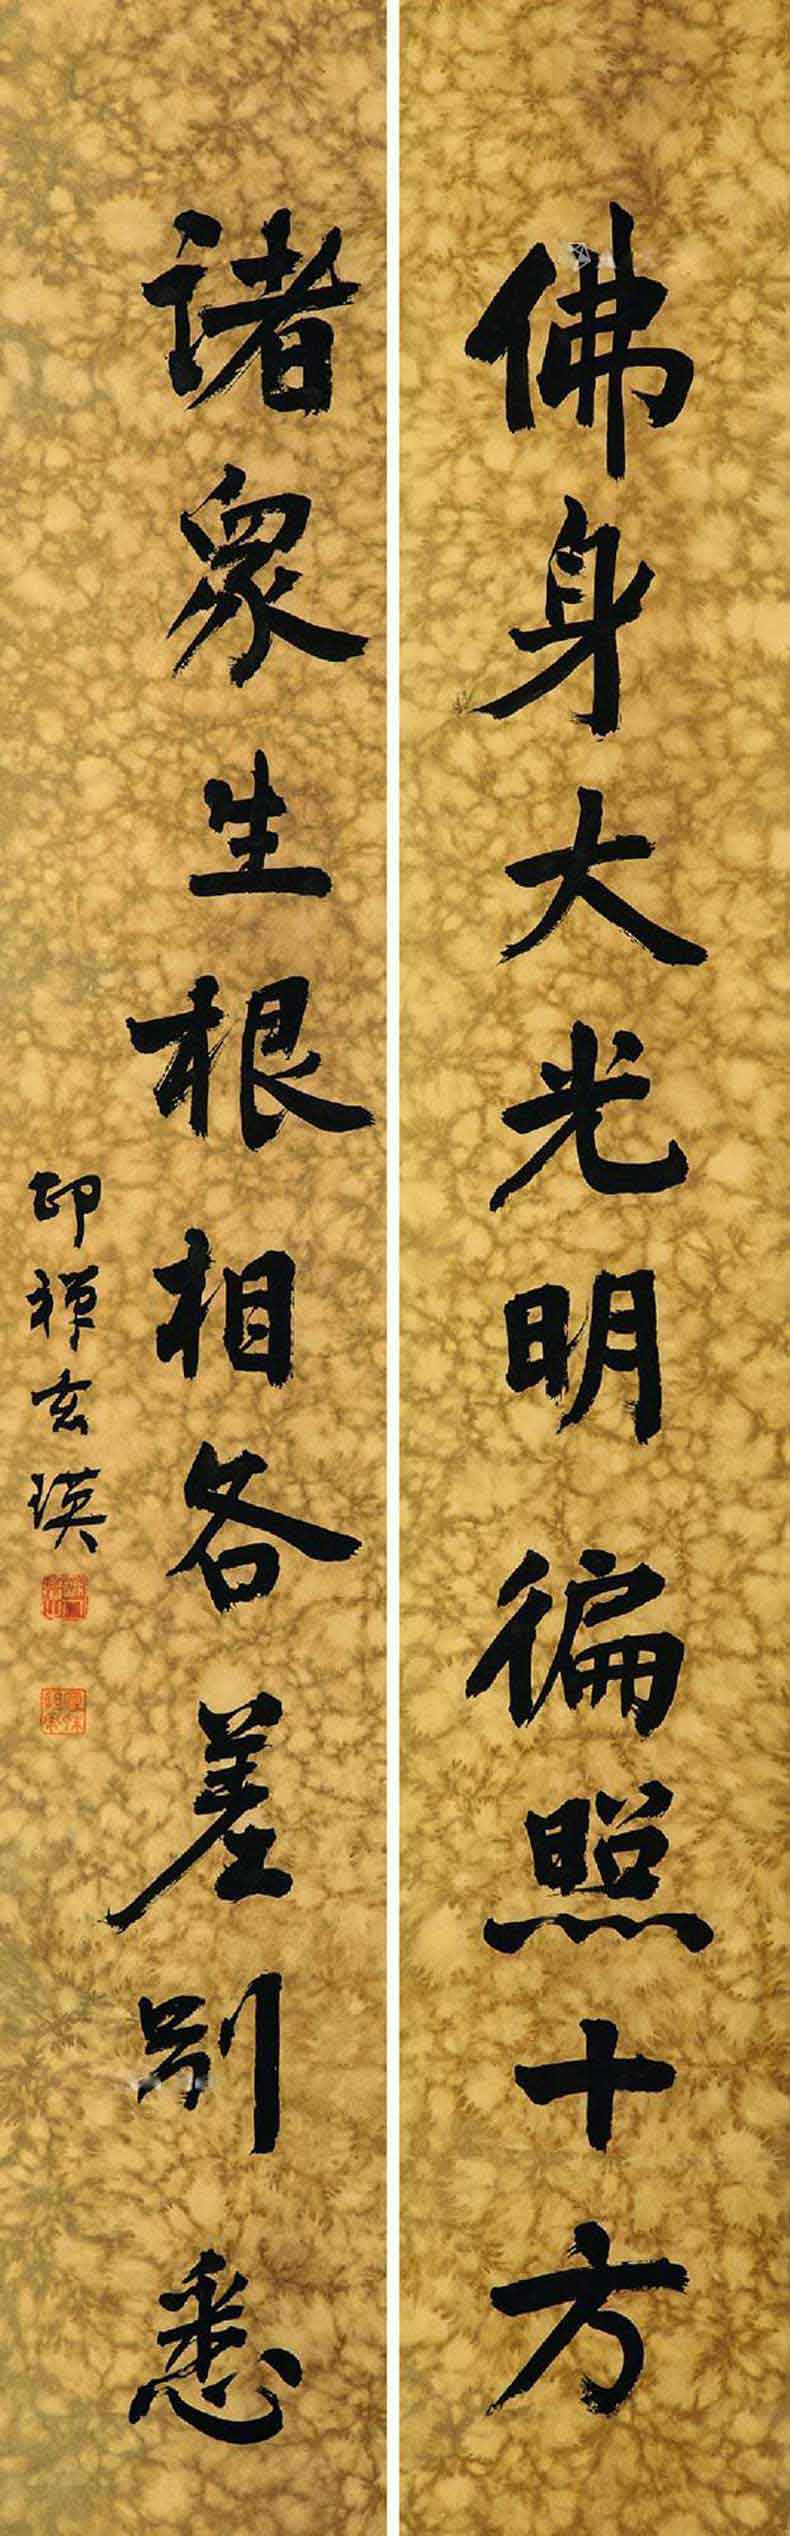 佛身大光明徧照十方
諸眾生根相各差別悉
印禪玄瑛